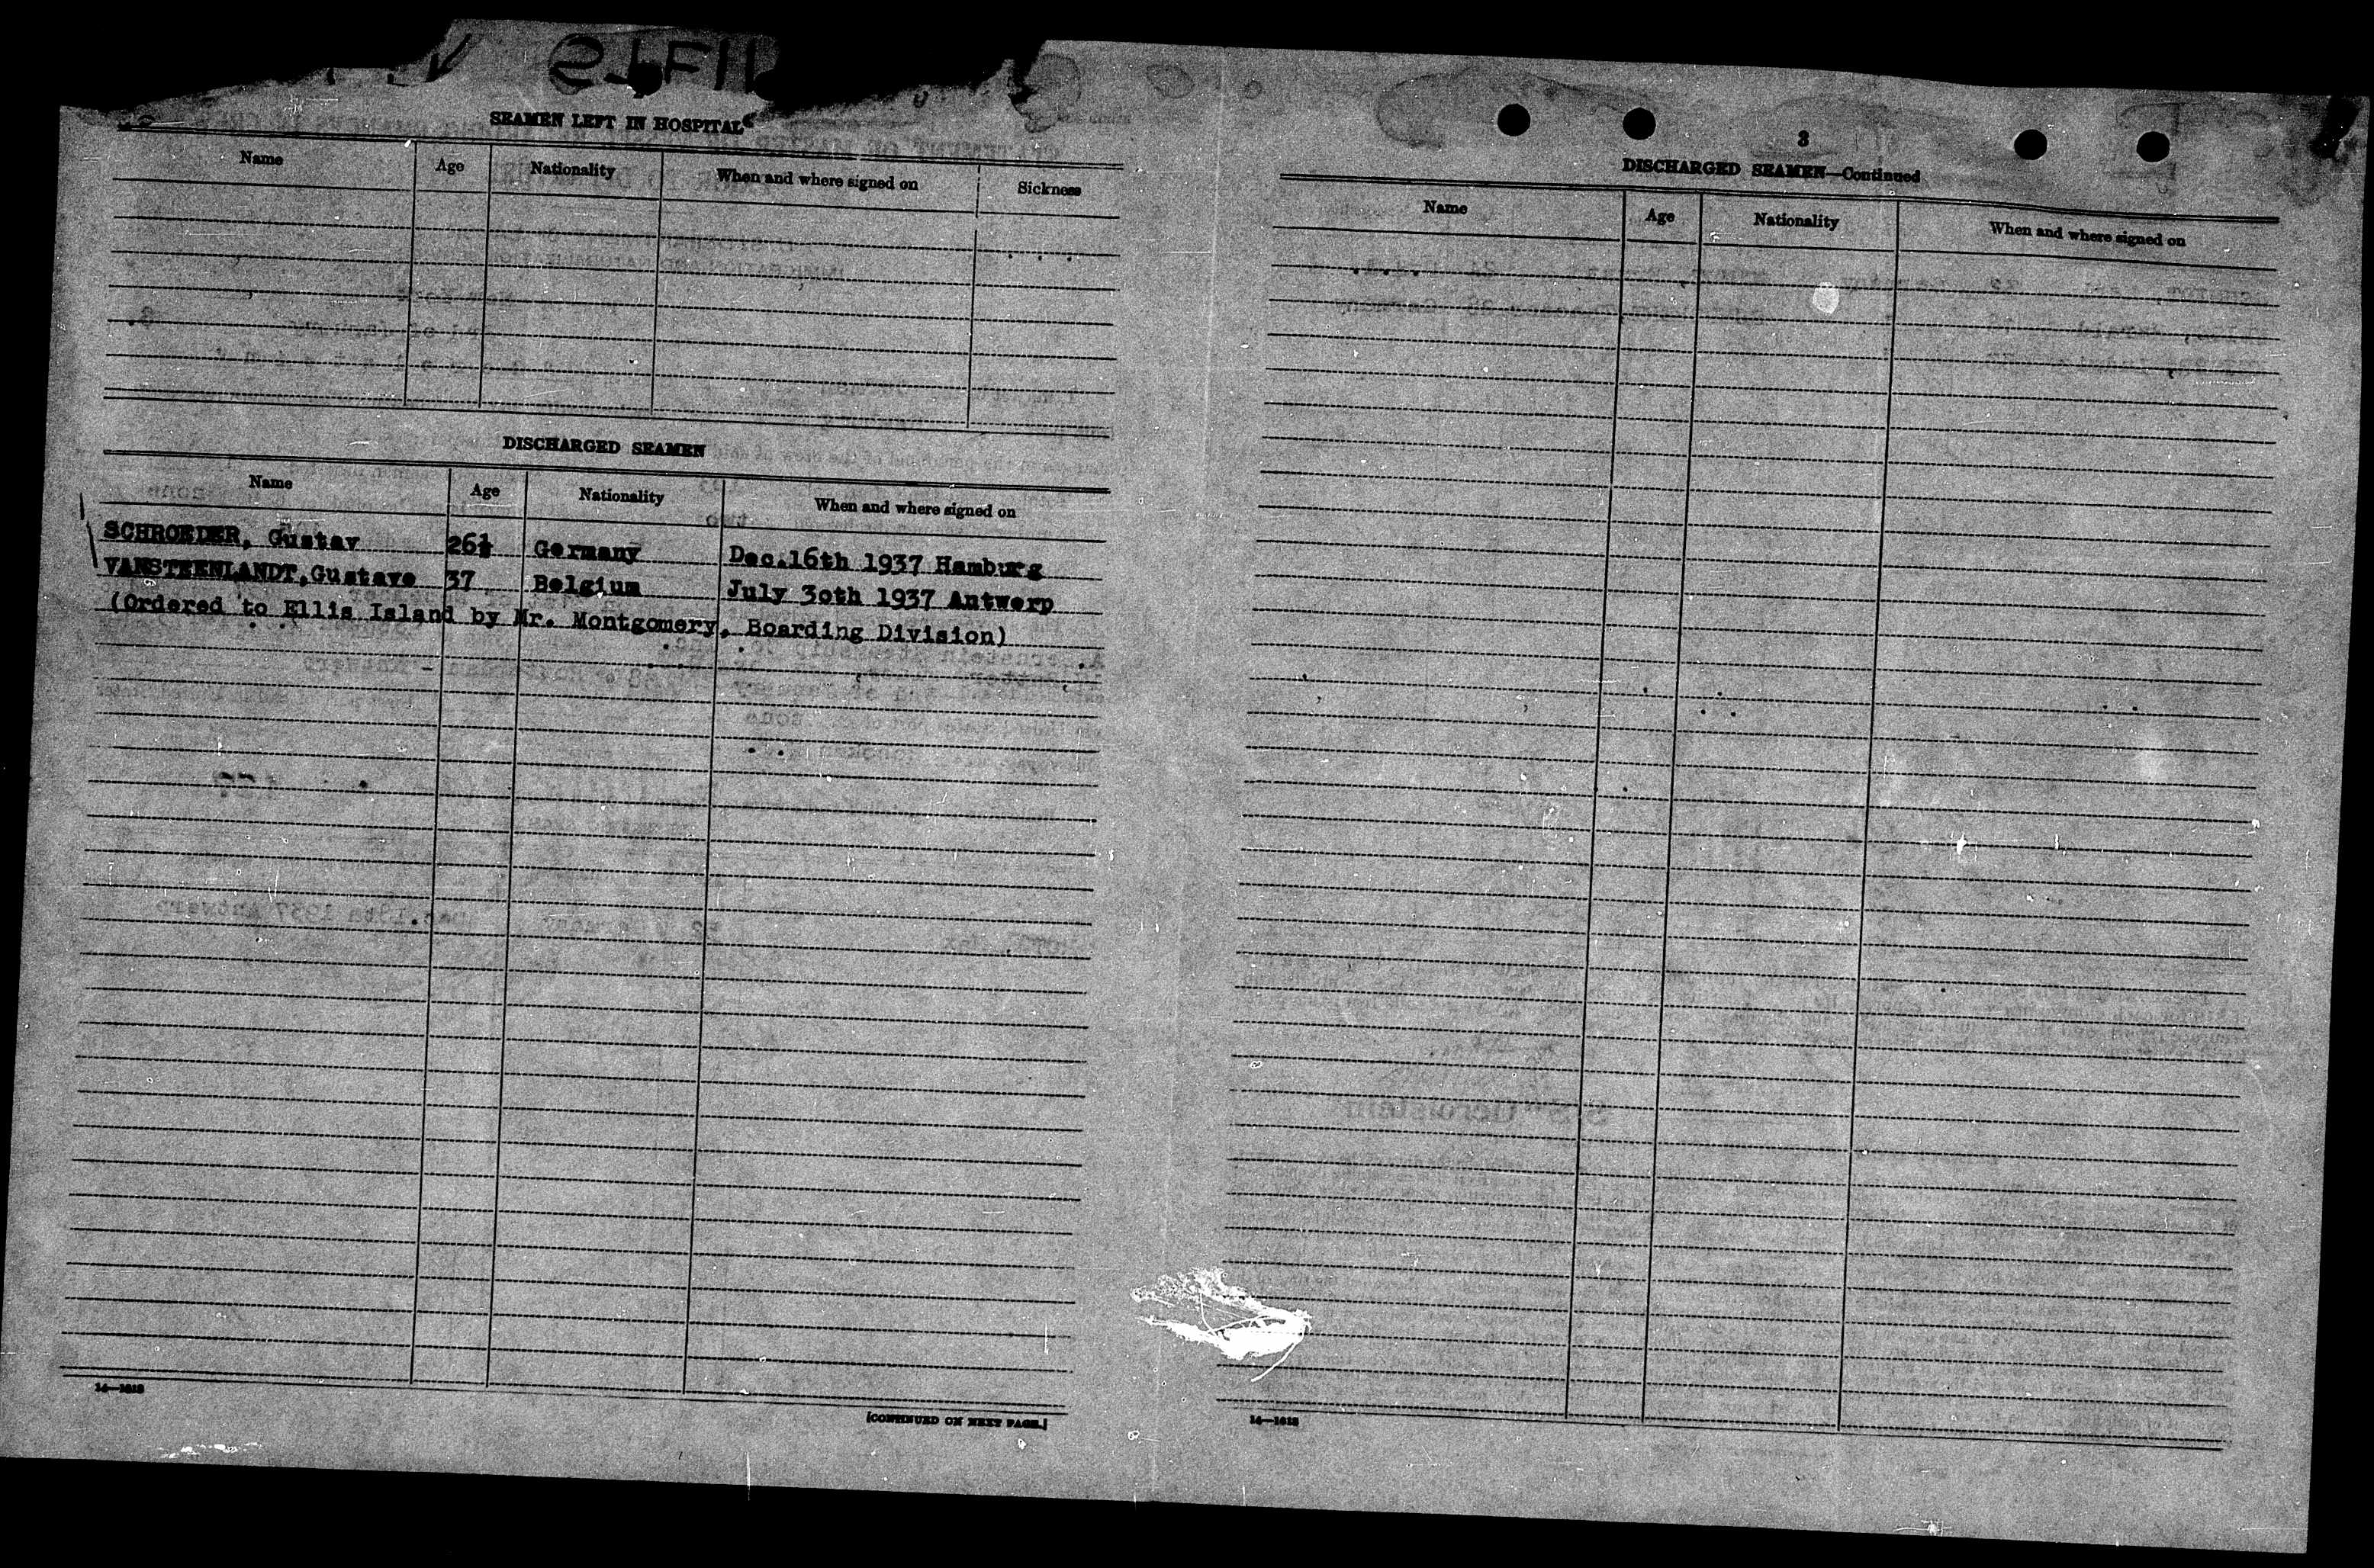 SEAMEN LEFT IN HOSPITAL
Name Age Nationality When and where signed on Sickness
DISCHARGED SEAMEN
Name Age Nationality When and where signed on
SCHROEDER, Gustav 26½ Germany Dec.16th 1937 Hamburg
VANSTEENLANDT,Gustave 37 Belgium July 30th 1937 Antwerp
(Ordered to Ellis Island by Mr. Montgomery, Boarding Division)
14—1618
[CONTINUED ON NEXT PAGE.]
3
DISCHARGED SEAMEN—Continued
Name Age Nationality When and where signed on
14—1618